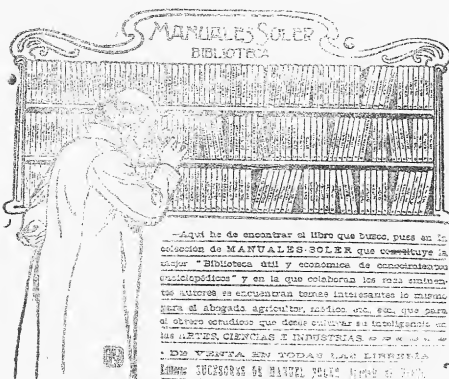 MANUALES SOLER
BIBLIOTECA
—Aquí he de encontrar el libro que busco, pues en la
colección de MANUALES-SOLER que constituye la
mejor "Biblioteca útil y económica de conocimientos
enciclopédicos" y en la que colaboran los más eminen-
tes autores se encuentran temas interesantes lo mismo
para el abogado, agricultor, médico, etc., etc., que para
el obrero estudioso que desee cultivar su inteligencia en
las ARTES, CIENCIAS É INDUSTRIAS.
DE VENTA EN TODAS LAS LIBRERÍA
SUCESORES DE MANUEL SOLER